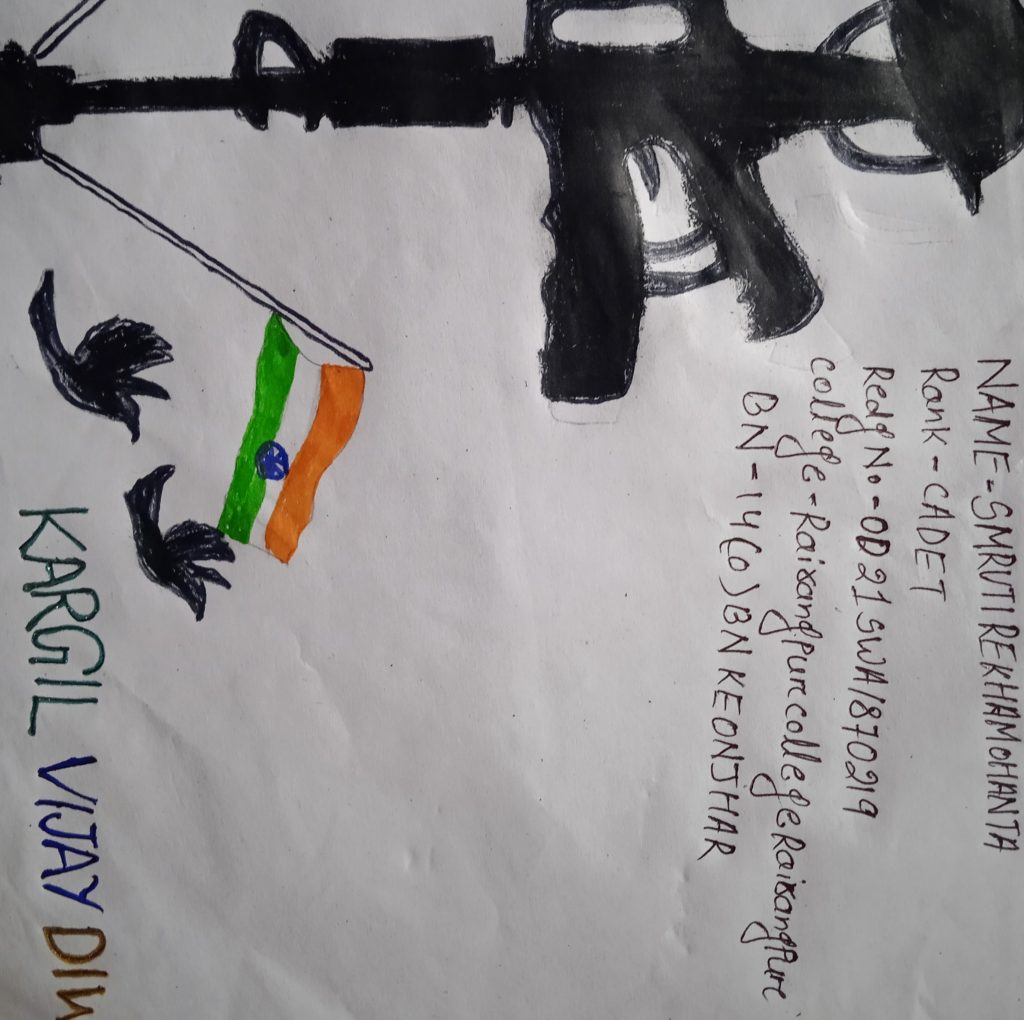 NAME-SMRUTIREKHAMOHANTA
Rank-CADET
Redg No-OD21SWA1870219
college-RaisangpurcollegeRaisangpur
BN-14(O)BNKEONJHAR
KARGIL VIJAY